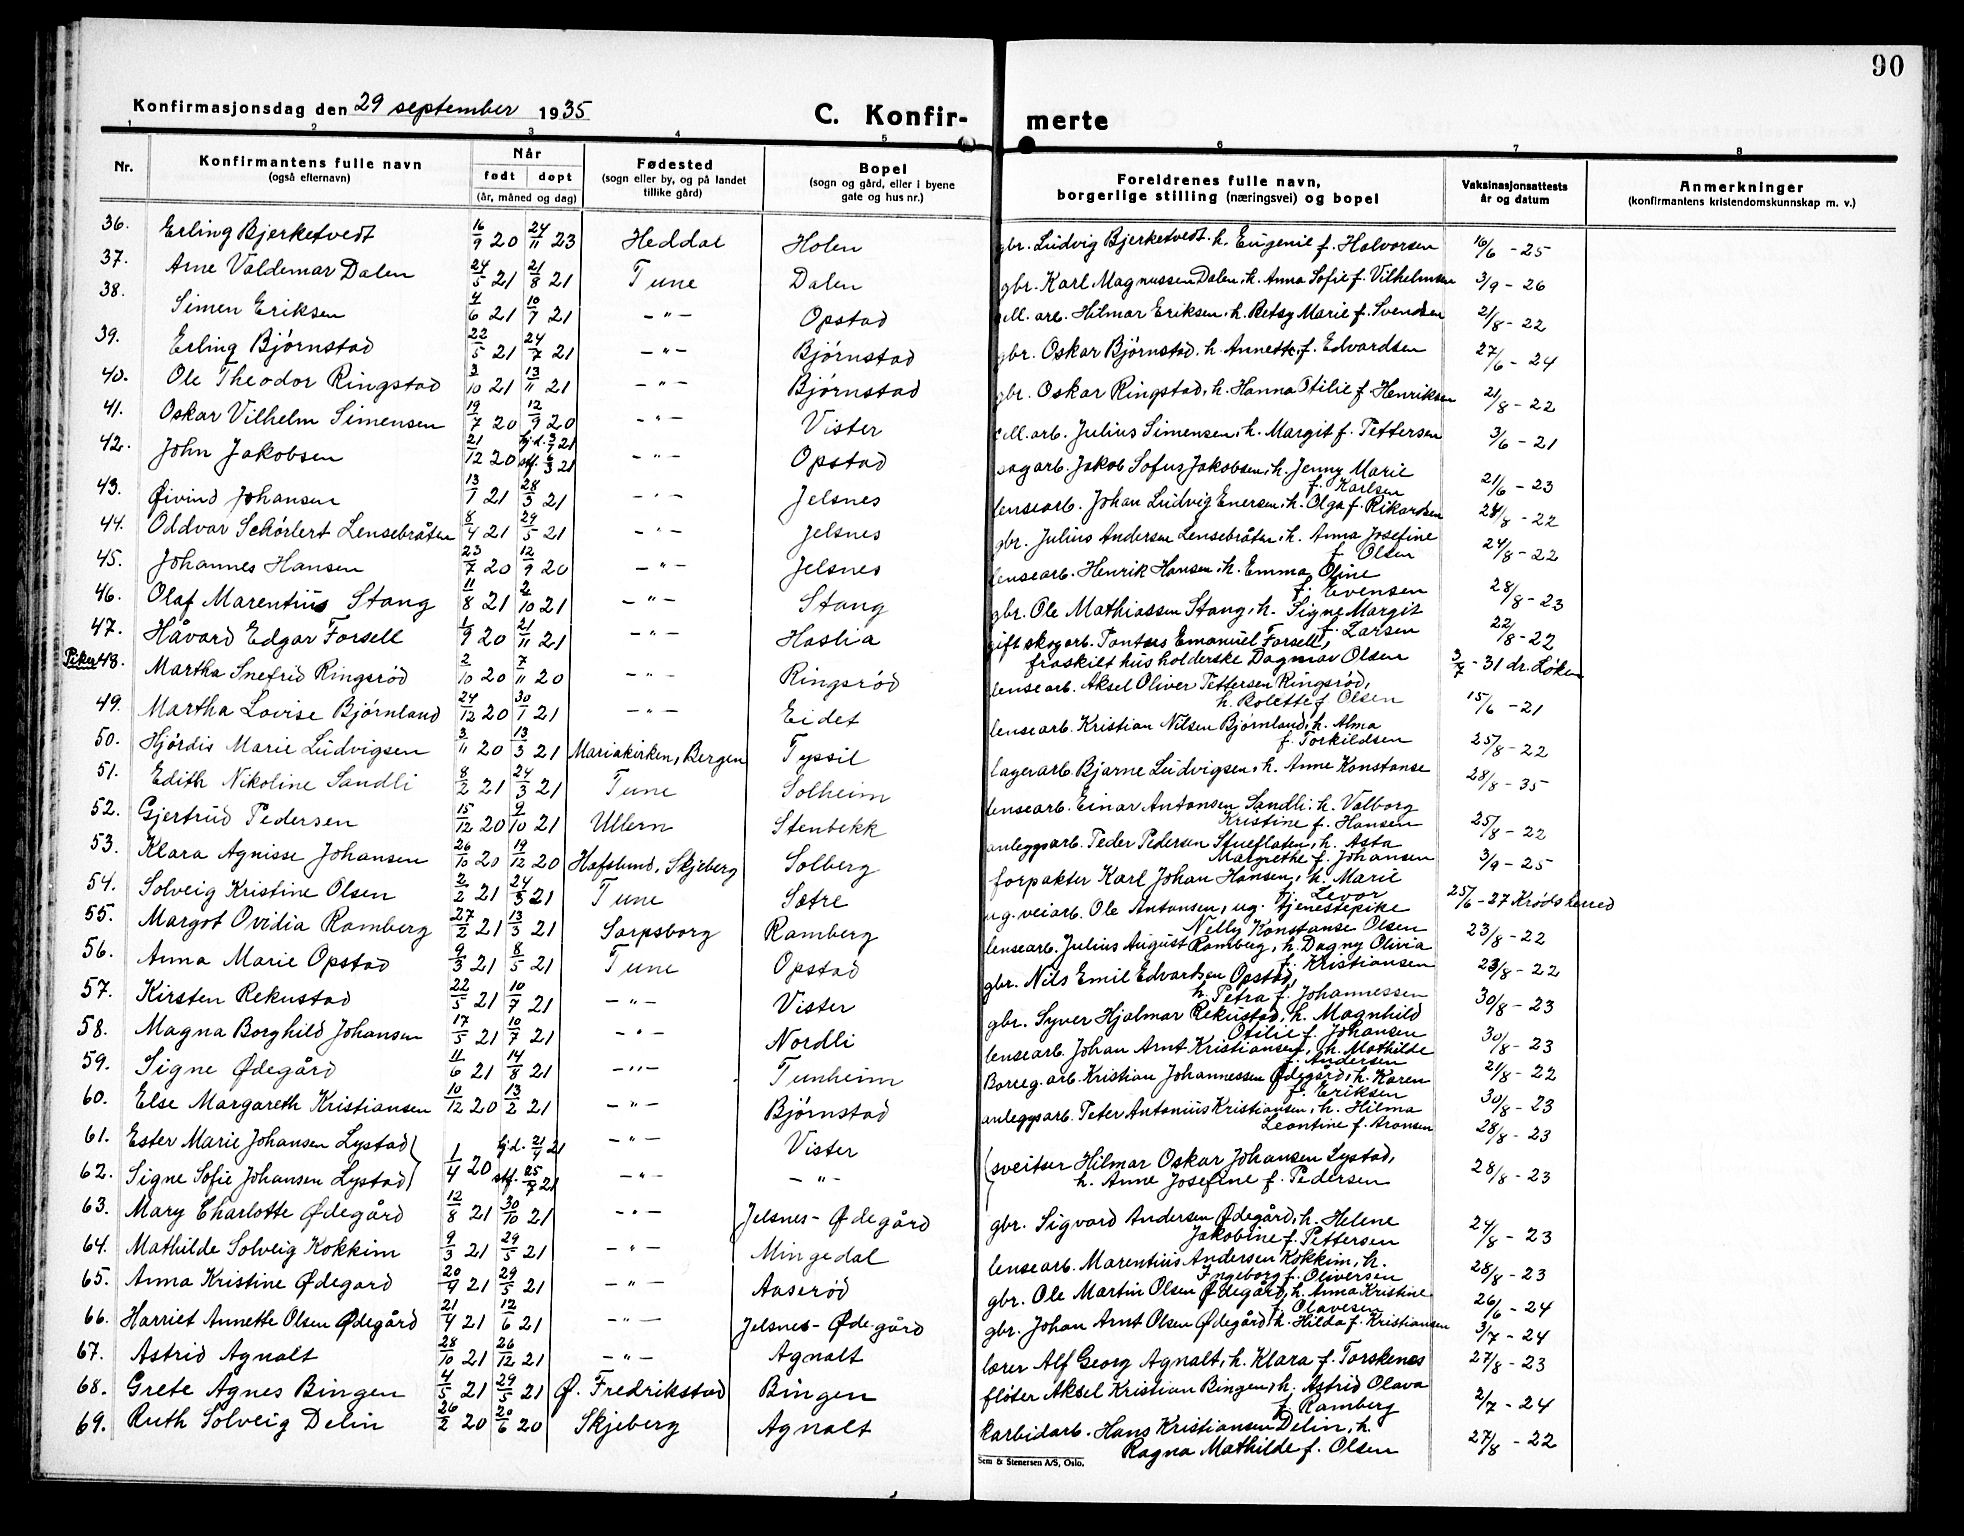 90
Konfirmasjonsdag den 29 september 1935
C. Konfir- merte
1 2 3 4 5 6 7 8
Nr. | Konfirmantens fulle navn (også efternavn) | Når født | døpt (år, måned og dag) | Fødested (sogn eller by, og på landet tillike gård) | Bopel (sogn og gård, eller i byene gate og hus nr.) | Foreldrenes fulle navn, borgerlige stilling (næringsvei) og bopel | Vaksinasjonsattests år og datum | Anmerkninger (konfirmantens kristendomskunnskap m. v.)
36. Erling Bjerketvedt 16/9 20 24/11 23 Heddal Holen gbr. Ludvig Bjerketvedt. h. Eugenie f. Halvorsen 16/6 - 25
37. Arne Valdemar Dalen 24/5 21 21/8 21 Tune Dalen gbr. Karl Magnussen Dalen, h. Anna Sofie f. Vilhelmsen 3/9 - 26
38. Simen Eriksen 4/6 21 10/7 21 -"- Opstad cell. arb. Hilmar Eriksen, h. Betsy Marie f. Svendsen 21/8 - 22
39. Erling Bjørnstad 22/5 21 24/7 21 -"- Bjørnstad gbr. Oskar Bjørnstad. h. Annette f. Edvardsen 27/6 - 24
40. Ole Theodor Ringstad 3/10 21 13/11 21 -"- Bjørnstad gbr. Oskar Ringstad, h. Hanna Otilie f. Henriksen 21/8 - 22
41. Oskar Vilhelm Simensen 19/7 20 12/9 20 -"- Vister cell. arb. Julius Simensen, h. Margit f. Pettersen 3/6 - 21
42. John Jakobsen 21/12 20 hj.d. 3/1 21 stf. 6/3 21 -"- Opstad sagarb. Jakob Sofus Jakobsen, h. Jenny Marie f. Karlsen 21/6 - 23
43. Øivind Johansen 13/1 21 28/3 21 -"- Jelsnes lensearb. Johan Ludvig Enersen, h. Olga f. Rikardsen 24/8 - 22
44. Oddvar Schørlert Lensebråten 8/4 21 29/5 21 -"- Jelsnes gbr. Julius Andersen Lensebråten, h. Anna Josefine f. Olsen 24/8 - 22
45. Johannes Hansen 23/7 20 12/9 20 -"- Jelsnes lensearb. Henrik Hansen, h. Emma Oline f. Evensen 28/8 - 23
46. Olaf Marentius Stang 11/8 21 2/10 21 -"- Stang gbr. Ole Mathiassen Stang, h. Signe Margit f. Larsen 22/8 - 22
47. Håvard Edgar Forsell 1/9 20 21/11 21 -"- Haslia gift skogarb. Pontus Emanuel Forsell, fraskilt husholderske Dagmar Olsen 3/7 - 31 dr. Løken
Piker 48. Martha Snefrid Ringsrød 2/10 20 7/11 20 -"- Ringsrød lensearb. Aksel Oliver Pettersen Ringsrød, h. Bolette f. Olsen 15/6 - 21
49. Martha Lovise Bjørnland 24/12 20 30/1 21 -"- Eidet lensearb. Kristian Nilsen Bjørnland, h. Alma f. Torkildsen 25/8 - 22
50. Hjørdis Marie Ludvigsen 3/11 20 13/3 21 Mariakirken, Bergen Tyssil lagerarb Bjarne Ludvigsen, h. Anne Konstanse 28/8 - 35
51. Edith Nikoline Sandli 8/2 21 24/3 21 Tune Solheim lensearb. Einar Antonsen Sandli. h. Valborg Kristine f. Hansen 25/8 - 22
52. Gjertrud Pedersen 15/12 20 9/10 21 Ullern Stenbekk anleggsarb. Peder Pedersen Stuefloten, h. Asta Margrethe f. Johansen 3/9 - 25
53. Klara Agnisse Johansen 26/10 20 19/12 20 Hafslund, Skjeberg Solberg forpakter Karl Johan Hansen, h. Marie f. Levor 25/6 - 27 Krødsherred
54. Solveig Kristine Olsen 2/2 21 24/3 21 Tune Sætre ug. veiarb. Ole Antonsen, ug. tjenestepike Nelly Konstanse Olsen 23/8 - 22
55. Margot Ovidia Ramberg 27/2 21 13/3 21 Sarpsborg Ramberg lensearb. Julius August Ramberg, h. Dagny Olivia f. Kristiansen 23/8 - 22
56. Anna Marie Opstad 9/3 21 8/5 21 Tune Opstad gbr. Nils Emil Edvardsen Opstad, h. Petra f. Johannessen 30/8 - 23
57. Kirsten Rekustad 22/5 21 10/7 21 -"- Vister gbr. Syver Hjalmar Rekustad, h. Magnhild Otilie f. Johansen 30/8 - 23
58. Magna Borghild Johansen 17/5 21 10/7 21 -"- Nordli lensearb. Johan Arnt Kristiansen, h. Mathilde f. Andersen 21/8 - 22
59. Signe Ødegård 11/6 21 14/8 21 -"- Tunheim Borreg. arb. Kristian Johannessen Ødegård, h. Karen f. Eriksen 30/8 - 23
60. Else Margareth Kristiansen 10/12 20 13/2 21 -"- Bjørnstad anleggsarb. Peter Antonius Kristiansen, h. Hilma Leontine f. Aronsen 28/8 - 23
61. Ester Marie Johansen Lystad 1/4 20 hj.d. 21/4 21 -"- Vister (sveitser Hilmar Oskar Johansen Lystad,
62. Signe Sofie Johansen Lystad stf. 25/7 21 -"- -"- h. Anne Josefine f. Pedersen 28/8 - 23
63. Mary Charlotte Ødegård 12/8 21 30/10 21 -"- Jelsnes-Ødegård gbr. Sigvard Andersen Ødegård, h. Helene Jakobine f. Pettersen 24/8 - 23
64. Mathilde Solveig Kokkim 9/3 21 29/5 21 -"- Mingedal lensearb. Marentius Andersen Kokkim, h. Ingeborg f. Oliversen 28/8 - 23
65. Anna Kristine Ødegard 20/4 21 29/5 21 -"- Aaserød gbr. Ole Martin Olsen Ødegård, h. Anna Kristine f. Olavesen 26/6 - 24
66. Harriet Annette Olsen Ødegård 21/4 21 12/6 21 -"- Jelsnes-Ødegård gbr. Johan Arnt Olsen Ødegård, h. Hilda f. Kristiansen 3/7 - 24
67. Astrid Agnalt 28/10 21 26/12 21 -"- Agnalt lærer Alf Georg Agnalt, h. Klara f. Torskenes 27/8 - 23
68. Grete Agnes Bingen 4/5 21 29/5 21 Ø. Fredrikstad Bingen fløter Aksel Kristian Bingen, h. Astrid Olava f. Ramberg 2/7 - 24
69. Ruth Solveig Delin 26/2 20 20/6 20 Skjeberg Agnalt karbidarb. Hans Kristiansen Delin, h. Ragna Mathilde f. Olsen 27/8 - 22
Sem & Stenersen A/S, Oslo.